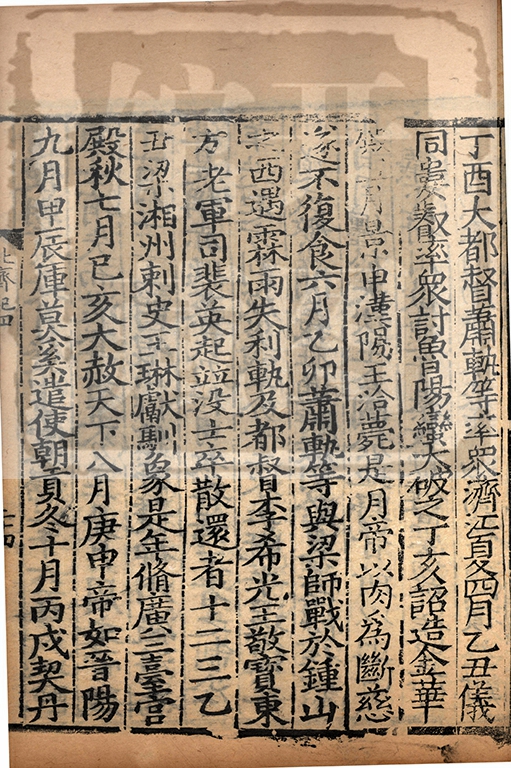 丁酉大都督蕭軌等率眾濟江夏四月乙丑儀
同婁叡率眾討魯陽蠻大破之丁亥詔造金華
殿五月景申漢陽王洽薨是月帝以肉為斷慈
遂不復食六月乙卯蕭軌等與梁師戰於鍾山
之西遇霖雨失利軌及都督李希光王敬寶東
方老軍司裴英起並没士卒散還者十二三乙
丑梁湘州刺史王琳獻馴象是年脩廣三臺宮
殿秋七月己亥大赦天下八月庚申帝如晉陽
九月甲辰庫莫奚遣使朝貢冬十月丙戌契丹
北齊紀四
二十四